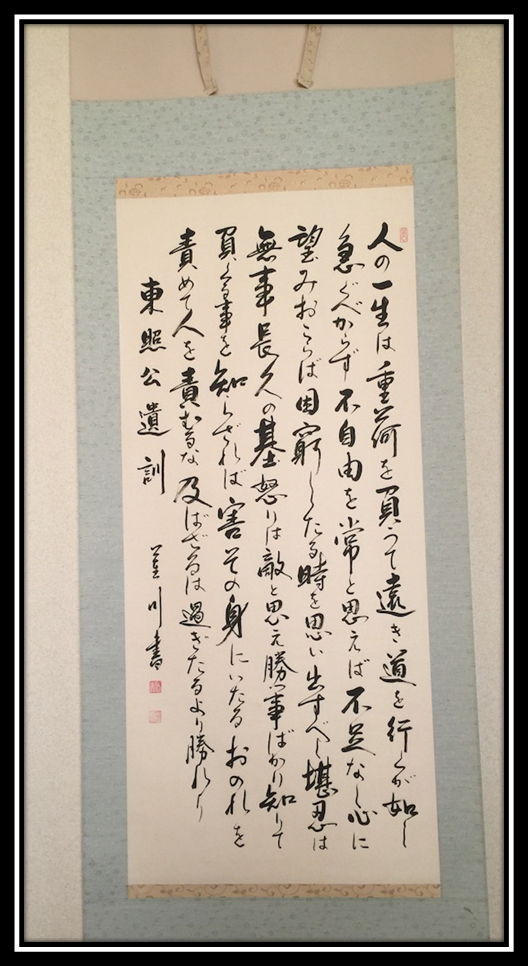 人の一生は重荷を負うて遠き道を行くが如し
急ぐべからず不自由を常と思えば不足なし心に
望みおこらば困窮したる時を思い出すべし堪忍は
無事長久の基怒りは敵と思え勝つ事ばかり知りて
負くる事を知らざれば害その身にいたるおのれを
責めて人を責むるな及ばざるは過ぎたるより勝れり
東照公遺訓
川書